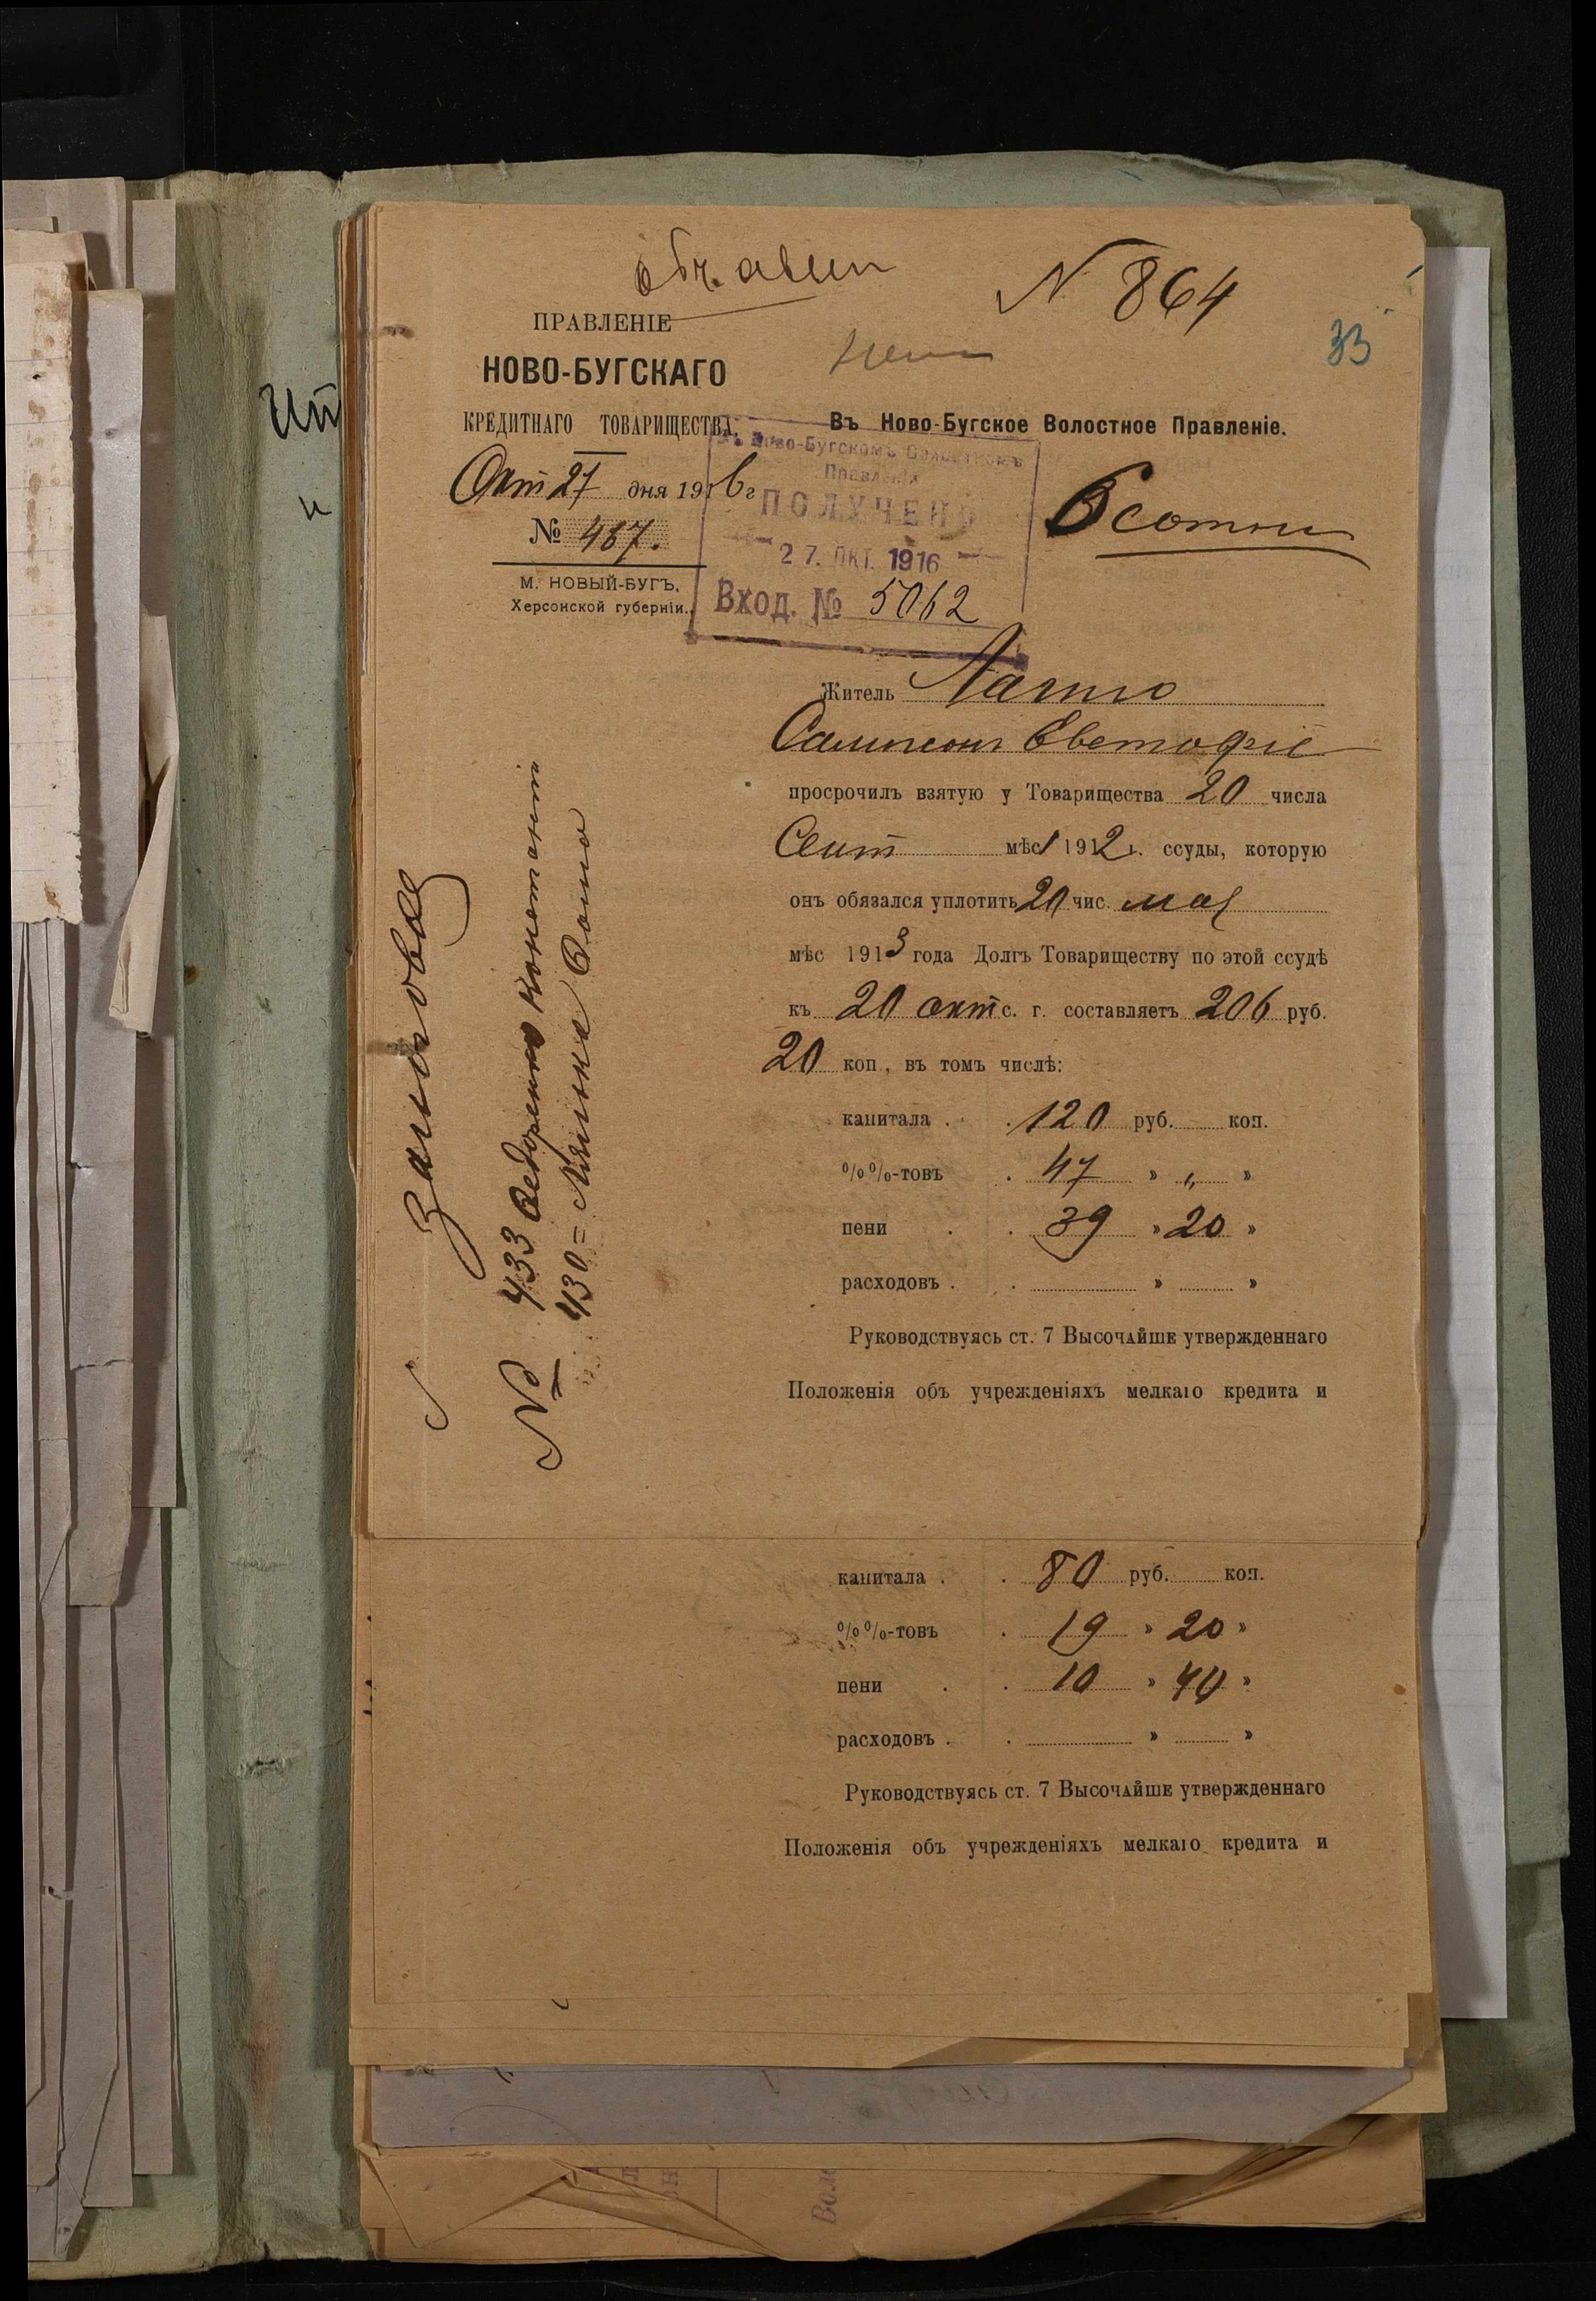 N 864
33
ПРАВЛЕНІЕ
НОВО-БУГСКАГО
КРЕДИТНАГО ТОВАРИЩЕСТВА.
Окт 27 дня 1916 г
№ 487.
М. НОВЫЙ-БУГЪ,
Херсонской губерніи.
Въ Ново-Бугское Волостное Правленіе.
Въ Ново-Бугскомъ Волостномъ
Правленіи
ПОЛУЧЕНО
27. ОКТ. 1916
Вход. № 5062
6 сотни
Житель
Сампсонъ
просрочилъ взятую у Товарищества 20 числа
Сент мѣс 1912 г. ссуды, которую
онъ обязался уплотить 20 чис. мая
мѣс 1913 года Долгъ Товариществу по этой ссудѣ
къ 20 окт с. г. составляетъ 206 руб.
20 коп., въ томъ числѣ:
капитала . . 120 руб. коп.
%%-товъ . 47 » „ »
пени . . 39 » 20 »
расходовъ . . » »
Руководствуясь ст. 7 Высочайше утвержденнаго
Положенія объ учрежденіяхъ мелкаго кредита и
№ 433 Федоренко
430 =
капитала . . 80 руб. коп.
%%-товъ . 19 » 20 »
пени . . 10 » 40 »
расходовъ . . » »
Руководствуясь ст. 7 Высочайше утвержденнаго
Положенія объ учрежденіяхъ мелкаго кредита и